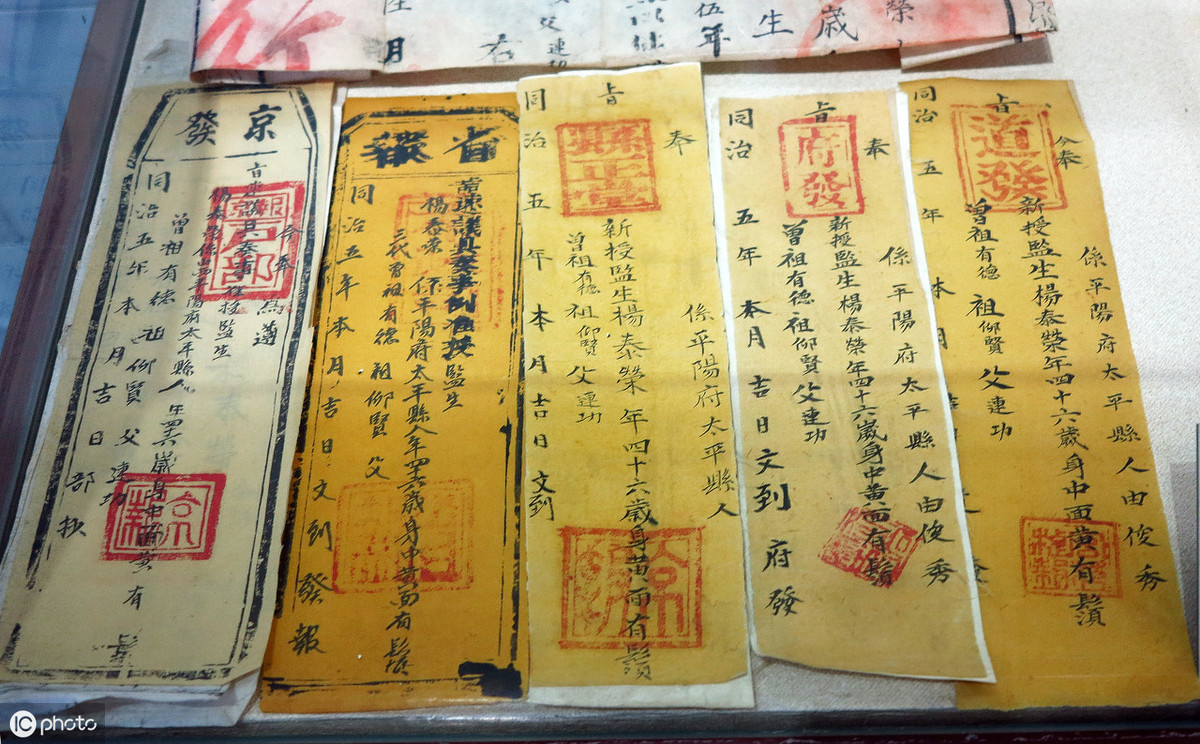 榮
歲
生
伍年
父連
月
奉
旨
道發
係平陽府太平縣人由俊秀
新授監生楊泰榮年四十六歲身中面黃有鬚
曾祖有德祖仰賢父連功
同治五年本月
奉
旨
府發
係平陽府太平縣人由俊秀
新授監生楊泰榮年四十六歲身中黃面有鬚
曾祖有德祖仰賢父連功
同治五年本月吉日文到府發
奉
旨
縣正堂
係平陽府太平縣人
新授監生楊泰榮年四十六歲身黃面有鬚
曾祖有德祖仰賢父連功
同治五年本月吉日文到
省報
速議具奏事例准授監生
楊泰榮係平陽府太平縣人年四十六歲身中黃面有鬚
三代曾祖有德祖仰賢父
同治五年本月吉日文到發報
京發
為遵
旨速議具奏事授監生
楊泰榮係平陽府太平縣人年四十六歲身中面黃有鬚
曾祖有德祖仰賢父連功
同治五年本月吉日部
IC photo